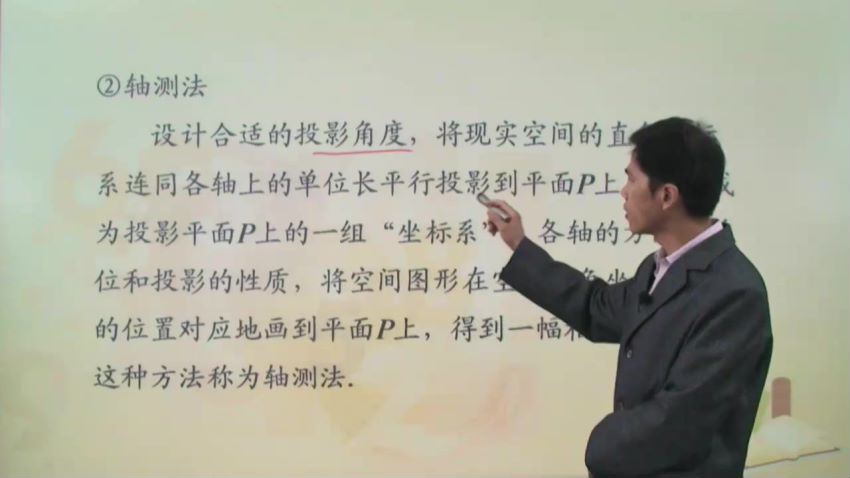 ②轴测法
设计合适的投影角度，将现实空间的直
系连同各轴上的单位长平行投影到平面P上
为投影平面P上的一组“坐标系”，各轴的方
位和投影的性质，将空间图形在空
的位置对应地画到平面P上，得到一幅
这种方法称为轴测法.